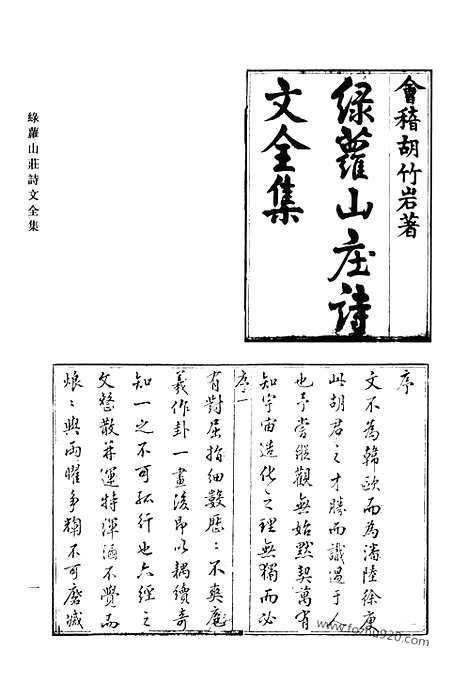 會稽胡竹岩著
綠蘿山庄詩
文全集
綠蘿山莊詩文全集
序
文不為韓歐而為潘陸徐庾
此胡君之才勝而識過于人
也予嘗縱觀無始默契萬有
知宇宙造化之理無獨而必
序一
有對屈指細數歷〻不爽庖
羲作卦一畫後即以耦續奇
知一之不可孤行也六經之
文整散并運特渾涵不覺而
烺〻與兩曜爭鞠不可磨滅
一
www.foshu920.com